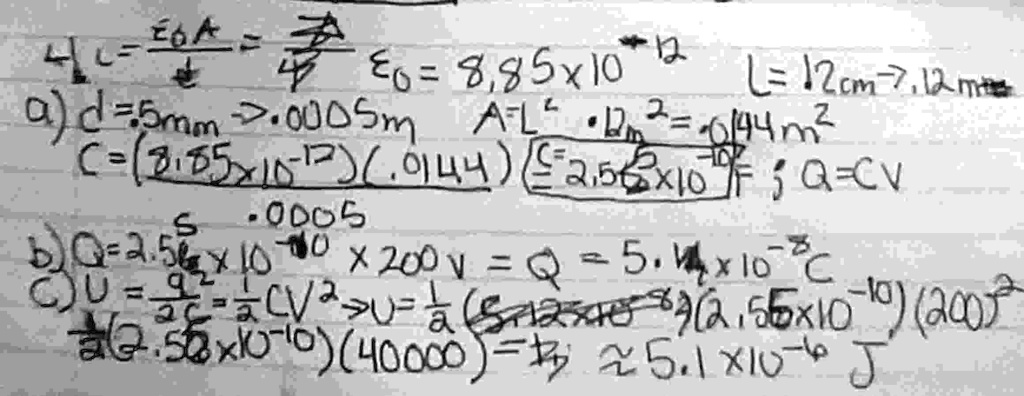 4) C = ε0A/d = ε0 = 8.85x10^-12 L = 12cm → .12m
a) d = .5mm → .0005m A = L² .12m² = .0144m²
C = (8.85x10^-12)(.0144)/.0005 C = 2.55x10^-10 F ; Q = CV
b) Q = 2.55x10^-10 x 200v = Q = 5.1x10^-8 C
c) U = q²/2C = 1/2 CV² → U = 1/2 (2.55x10^-10)(200)²
1/2(2.55x10^-10)(40000) = ≈ 5.1x10^-6 J